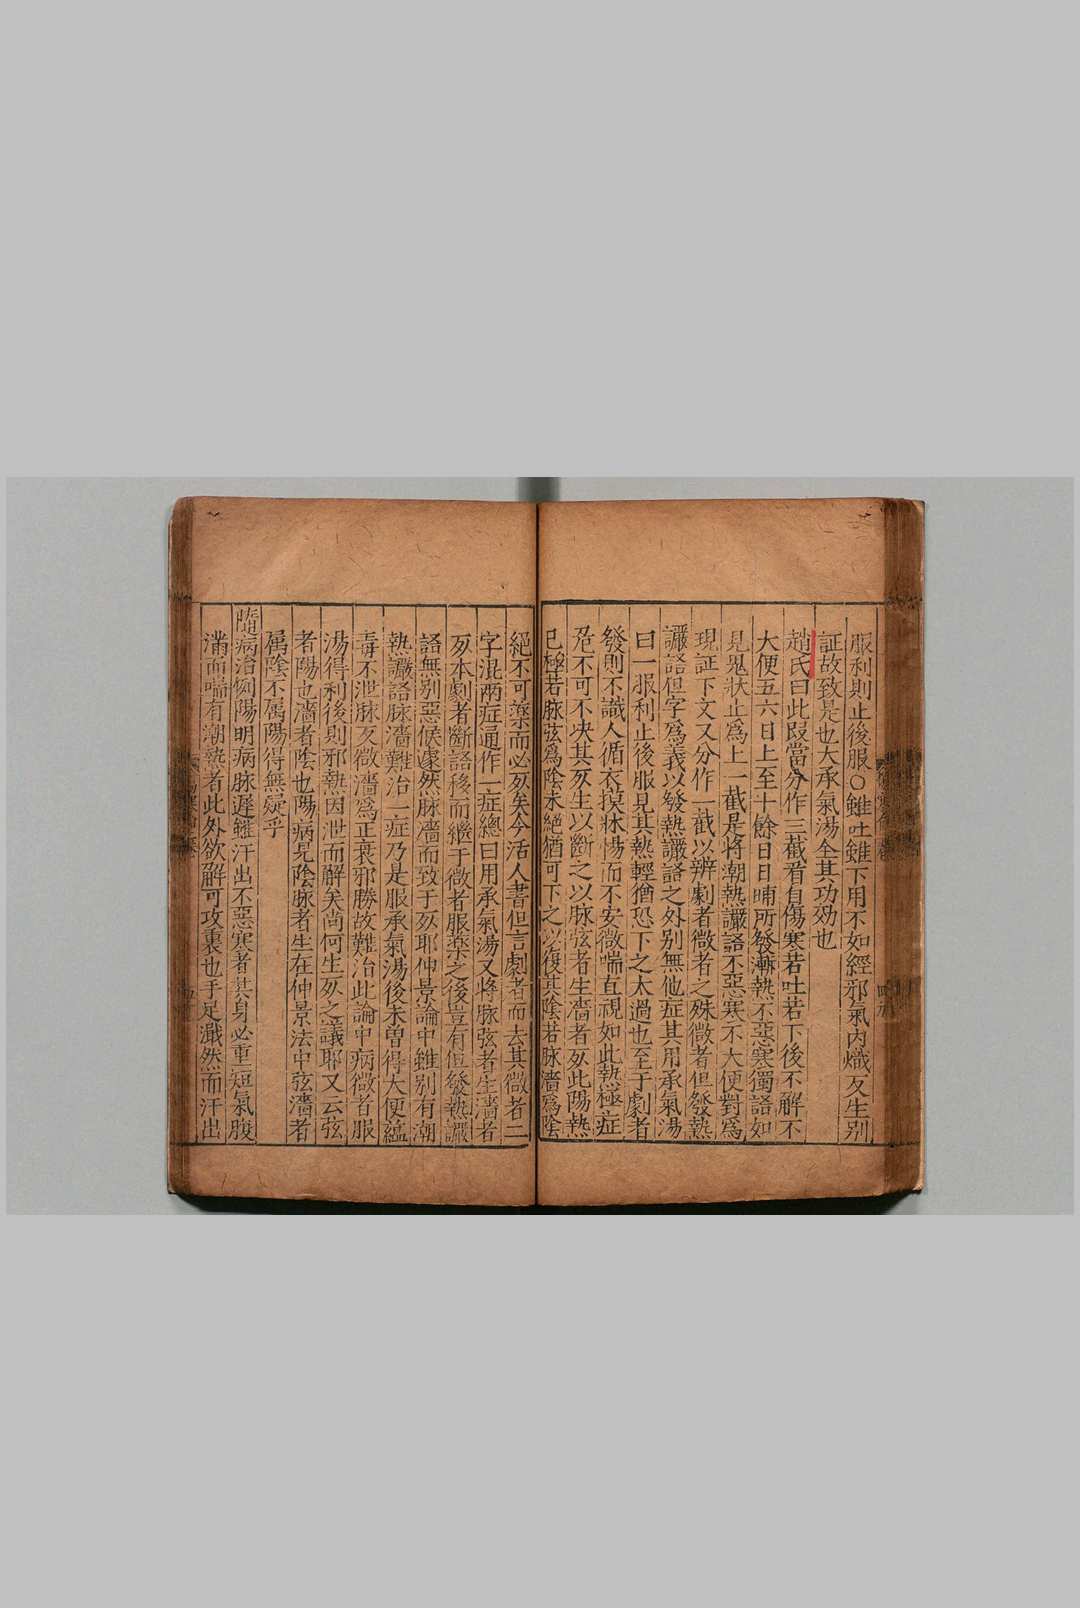 服利則止後服○雖吐雖下用不如經邪氣内熾反生别
証故致是也大承氣湯全其功効也
趙氏曰此叚當分作三截看自傷寒若吐若下後不觧不
大便五六日上至十餘日日晡所發潮熱不惡寒獨語如
見鬼狀止爲上一截是將潮熱讝語不惡寒不大便對爲
現証下文又分作一截以辨劇者微者之殊微者但發熱
讝語但字爲義以發熱讝語之外别無他症其用承氣湯
曰一服利止後服見其熱輕猶恐下之太過也至于劇者
發則不識人循衣摸牀惕而不安微喘直視如此熱極症
危不可不决其死生以斷之以脉弦者生濇者死此陽熱
已極若脉弦爲陰未絶猶可下之以復其陰若脉濇爲陰
絕不可藥而必死矣今活人書但言劇者而去其微者二
字混兩症通作一症總曰用承氣湯又將脉弦者生濇者
死本劇者斷語移而繼于微者服藥之後豈有但發熱讝
語無别惡候遽然脉濇而致于死耶仲景論中雖别有潮
熱讝語脉濇難治一症乃是服承氣湯後未曽得大便蘊
毒不泄脉反微濇爲正衰邪勝故難治此論中病微者服
湯得利後則邪熱因泄而觧矣尚何生死之議耶又云弦
者陽也濇者陰也陽病見陰脉者生在仲景法中弦濇者
属陰不属陽得無疑乎
臨病治例陽明病脉遲雖汗出不惡寒者其身必重短氣腹
滿而喘有潮熱者此外欲觧可攻裏也手足濈然而汗出